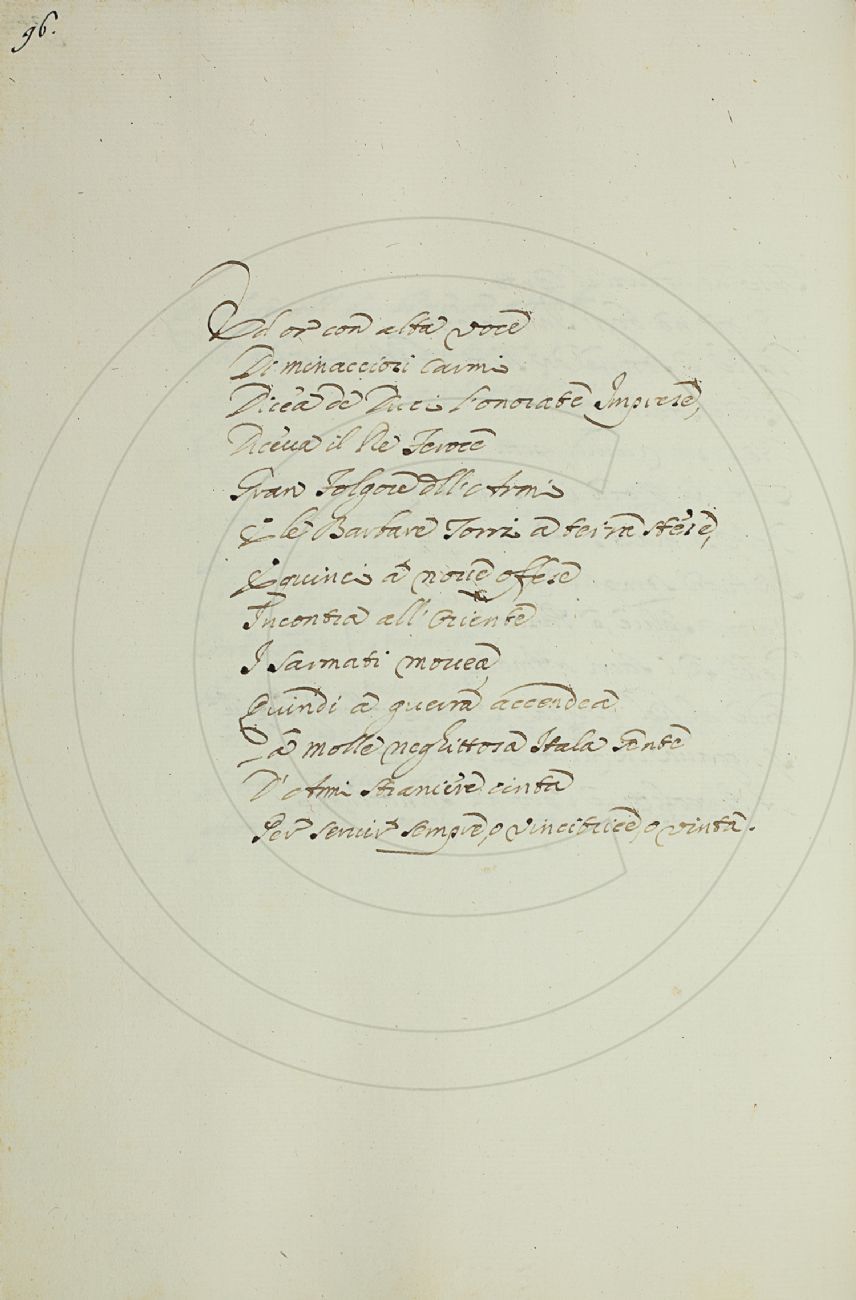 96.
Ed or con alta voce
Di minacciosi Carmi
Dicea de Duci l'onorate Imprese,
Diceva il Re Feroce
Gran Folgore dell'Armi
E le Barbare Torri a terra stese,
E quinci a nove offese
Incontra all'Oriente
I Sarmati movea,
Quindi a guerra accendea
La molle neghittosa Itala Gente
D'Armi straniere cinta
Per servir sempre, o vincitrice, o vinta.